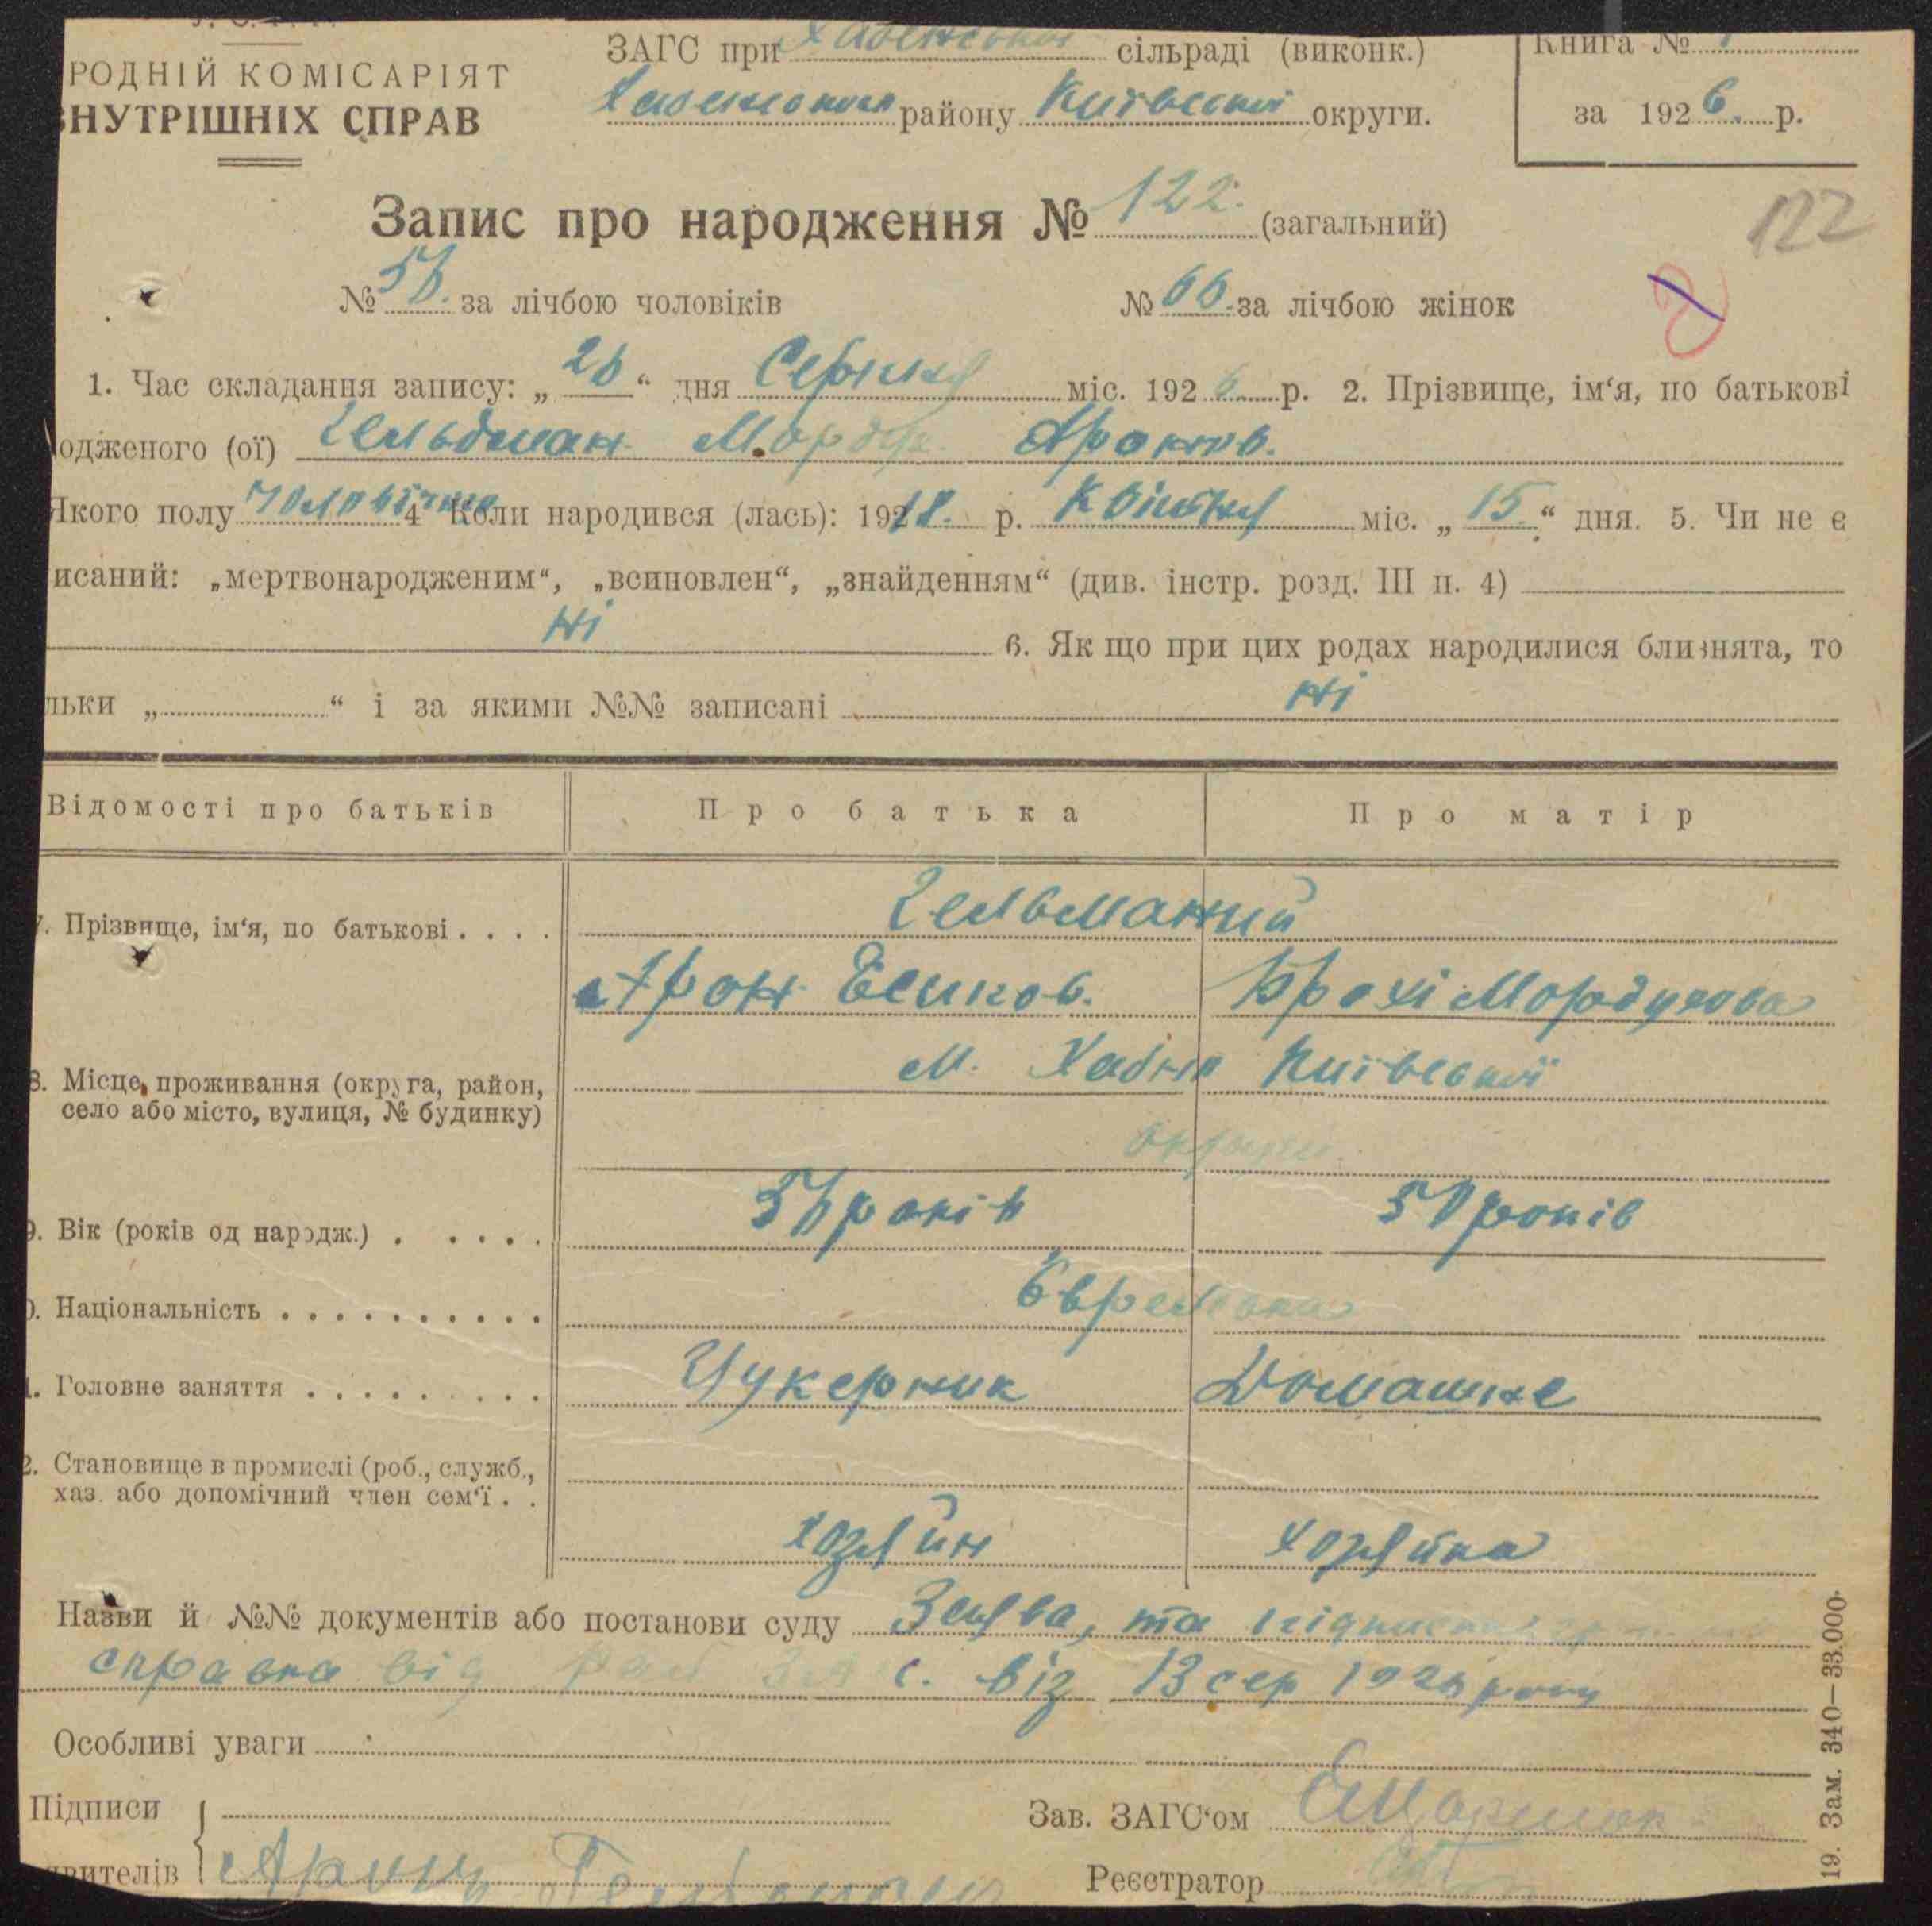 ЗАГС при Хабенської сільраді (виконк.)
Книга №
РОДНІЙ КОМІСАРІЯТ
ВНУТРІШНІХ СПРАВ
Хабенського району Київської округи.
за 1926 р.
Запис про народження № 122. (загальний)
122
№ 56. за лічбою чоловіків № 66. за лічбою жінок
1. Час складання запису: „26“ дня Серпня міс. 1926 р. 2. Прізвище, ім‘я, по батькові
одженого (ої) Гельдман Мордко Аронов.
Якого полу чоловічого 4 Коли народився (лась): 1918. р. Квітня міс. „15.“ дня. 5. Чи не є
исаний: „мертвонародженим“, „всиновлен“, „знайденням“ (див. інстр. розд. III п. 4)
Ні
6. Як що при цих родах народилися близнята, то
льки „ “ і за якими №№ записані Ні
Відомості про батьків Про батька Про матір
7. Прізвище, ім‘я, по батькові . . . .
Арон Мордухова
8. Місце проживання (округа, район,
село або місто, вулиця, № будинку)
м. Хабне Київської
округи
9. Вік (років од народж.) . . . . . 56 років 50 років
0. Національність . . . . . . . . . . Єврейська
1. Головне заняття . . . . . . . . . Цукерник Домашнє
2. Становище в промислі (роб., служб.,
хаз. або допомічний член сем‘ї . .
хозяйн хозяйка
Назви й №№ документів або постанови суду Заява, та
справка від с. віз 13 сер 1926 року
Особливі уваги
Підписи
Зав. ЗАГС‘ом
явителів
Реєстратор
19. Зам. 340—33.000.